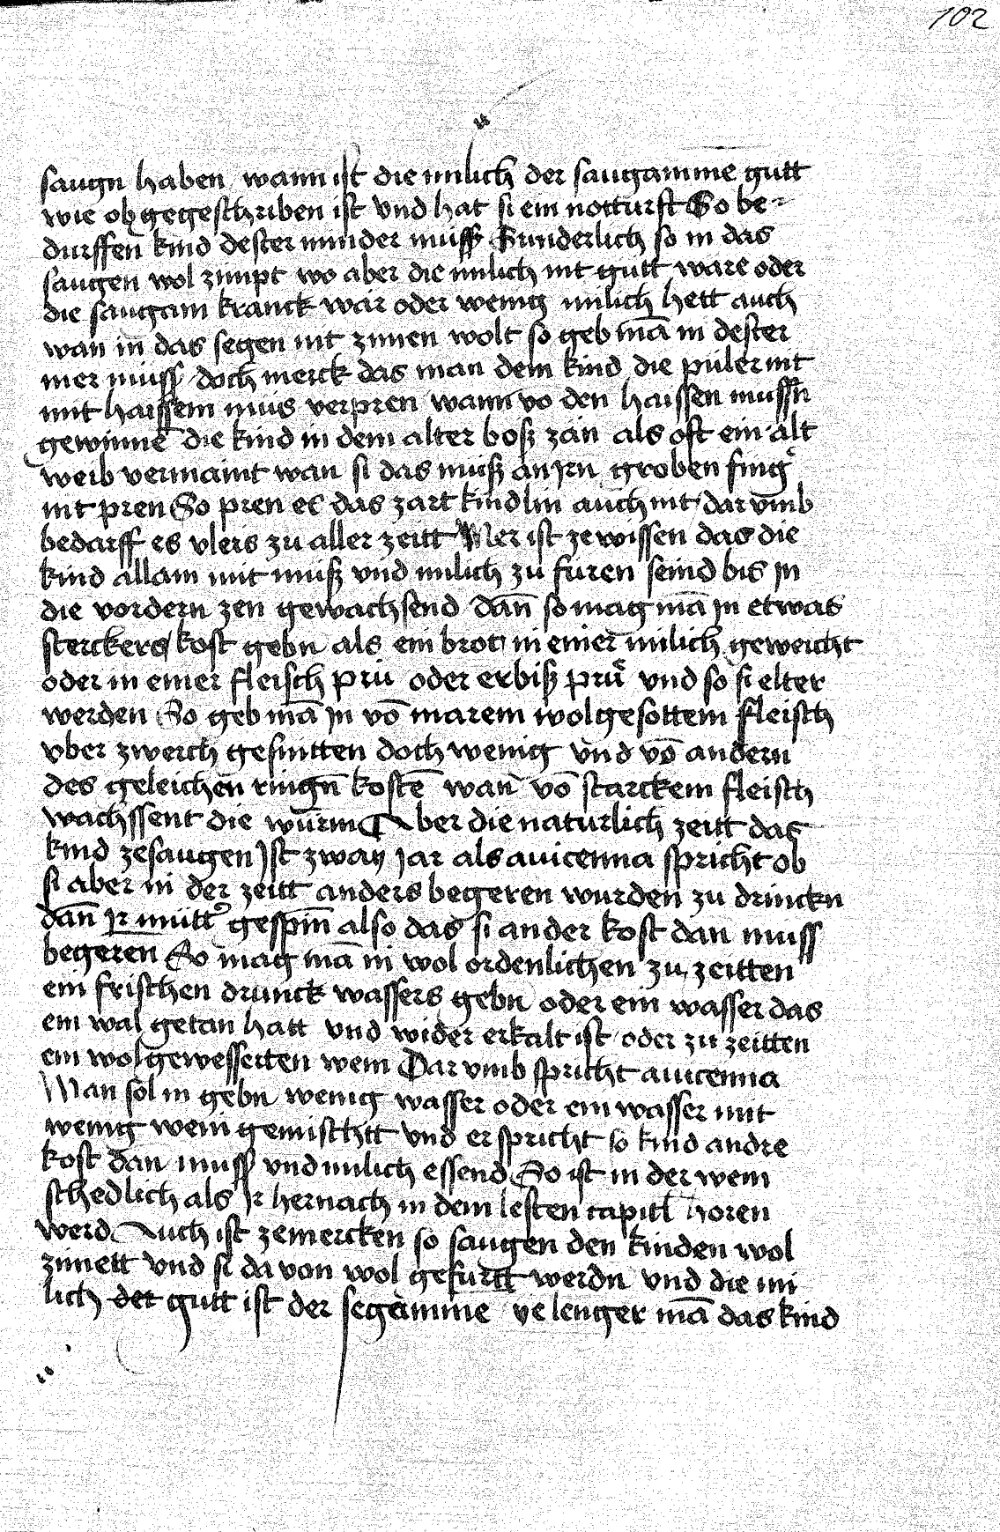 102
saugn haben wann ist die milich der saugamme gutt
wie obgegeschriben ist vnd hat si ein notturft So be-
durffen kind dester minder muss Sunderlich so in das
saugen wol zimpt wo aber die milich nit gutt ware oder
die saugam kranck wär oder wenig milich hett auch
wan in das segen nit zimen wolt so geb mā in dester
mer muss doch merck das man dem kind die piler nit
mit haissem mus verpren wann vo den haissen mussn̄
gewinnē die kind in dem alter boß zän als oft ein alt
weib vermaint wan si das muß an jrn groben fing̉
nit pren So pren es das zart kindlin auch nit dar vmb
bedarff es vleis zu aller zeitt Mer ist ze wissen das die
kind allain mit muß vnd milich zu furen seind bis jn
die vordern zen gewachsend dan̄ so mag mā jn etwas
sterckers kost gebn als ein brott in einer milich geweicht
oder in einer fleisch prü oder erbiß prů vnd so si elter
werden So geb mā jn vō marem wolgesottem fleisch
vber zwerch gesnitten doch wenig vnd vō andern
des geleichen ringn̄ kostē wan vō starckem fleisch
wachssent die wurm Aber die naturlich zeitt das
kind zesaugen jst zway jar als auicenna spricht ob
si aber in der zeitt anders begeren wurden zu drinckn
dan̄ jr mutt̉ gespin̄ also das si ander kost dan muss
begeren̄ So mag mā in wol ordenlichen zu zeitten
ein frischen drunck wassers gebn oder ein wasser das
ein wal getan hatt vnd wider erkalt ist oder zu zeitten
ein wolgewesserten wein Dar vmb spricht auicenna
Man sol in gebn wenig wasser oder ein wasser mit
wenig wein gemischtt vnd er spricht so kind andre
kost dan muss vnd milich essend So ist in der wein
schedlich als jr hernach in dem lesten capitl horen
werd Auch ist zemercken so saugen den kinden wol
zimett vnd si da von wol gefurtt werdn vnd die mi
lich der gutt ist der segamme ye lenger mā das kind